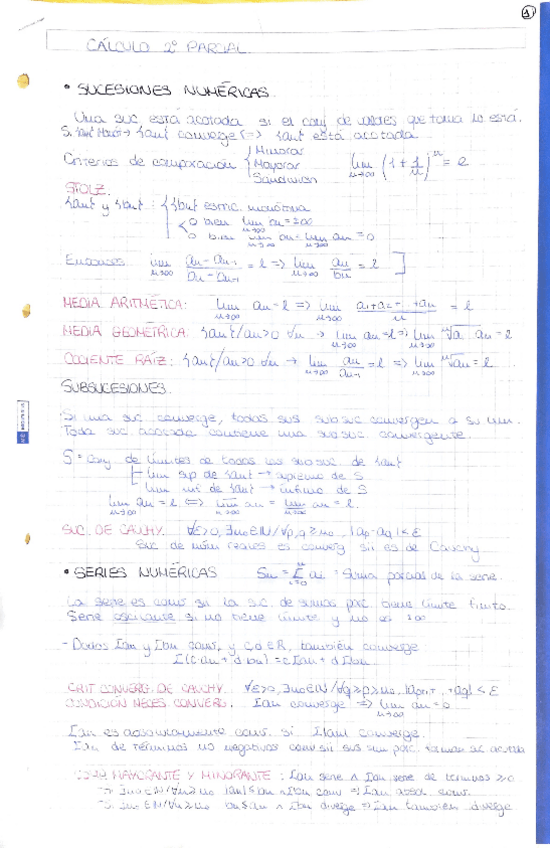 1
CÁLCULO 2º PARCIAL
• SUCESIONES NUMÉRICAS
Una suc está acotada si el conj de valores que toma lo está.
{an} converge <=> {an} está acotada
Criterios de comparación { Minorar
Mayorar
Sandwich
lim n→∞ (1 + 1/n)^n = e
STOLZ
{an} y {bn} : { {bn} estric. monótona
O bien lim n→∞ an = ±∞
O bien lim n→∞ an = lim n→∞ an = 0
Entonces lim n→∞ (an - an-1)/(bn - bn-1) = l => lim n→∞ an/bn = l
MEDIA ARITMÉTICA: lim n→∞ an = l => lim n→∞ (a1+a2+...+an)/n = l
MEDIA GEOMÉTRICA: {an}/an>0 ∀n → lim n→∞ an = l => lim n→∞ an = l
COCIENTE RAÍZ: {an}/an>0 ∀n → lim n→∞ an/an-1 = l => lim n→∞ ⁿ√an = l
SUBSUCESIONES
Si una suc converge, todas sus subsuc convergen a su lim.
Toda suc acotada contiene una subsuc convergente.
S = conj de límites de todas las subsuc de {an}
lim sup de {an} → supremo de S
lim inf de {an} → ínfimo de S
lim n→∞ an = l <=> lim an = lim an = l.
SUC. DE CAUCHY. ∀ε>0, ∃n0∈IN/∀p,q≥n0, |ap-aq|<ε
Suc de núm reales es converg sii es de Cauchy
• SERIES NUMÉRICAS Sn = Σ ai = Suma parcial de la serie
La serie es conv sii la suc. de sumas parc. tiene límite finito.
Serie oscilante si no tiene límite y no es ±∞
- Dados Σan y Σbn conv, y c,d∈R, también converge
Σ(c an + d bn) = cΣan + dΣbn
CRIT CONVERG. DE CAUCHY. ∀ε>0, ∃n0∈IN/∀q≥p≥n0, |ap+1+...+aq| < ε
CONDICIÓN NECES CONVERG. Σan converge => lim n→∞ an = 0
Σan es absolutamente conv. si Σ|an| converge.
Σan de términos no negativos conv sii sus sum parc. forman suc acotada
MAYORANTE Y MINORANTE : Σan serie ∧ Σbn serie de términos ≥0
- Si ∃n0∈IN/∀n≥n0 |an|≤bn ∧ Σbn conv => Σan absol conv.
- Si ∃n0∈IN/∀n≥n0 bn≤an ∧ Σbn diverge => Σan también diverge